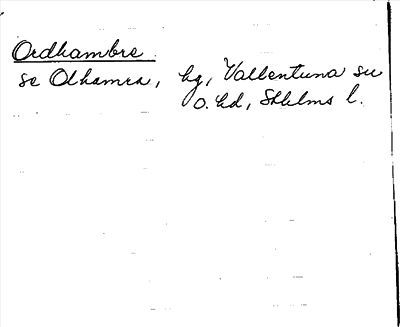 Ordhambre
se Olhamra, hg, Vallentuna sn
o. hd, Sthlms l.